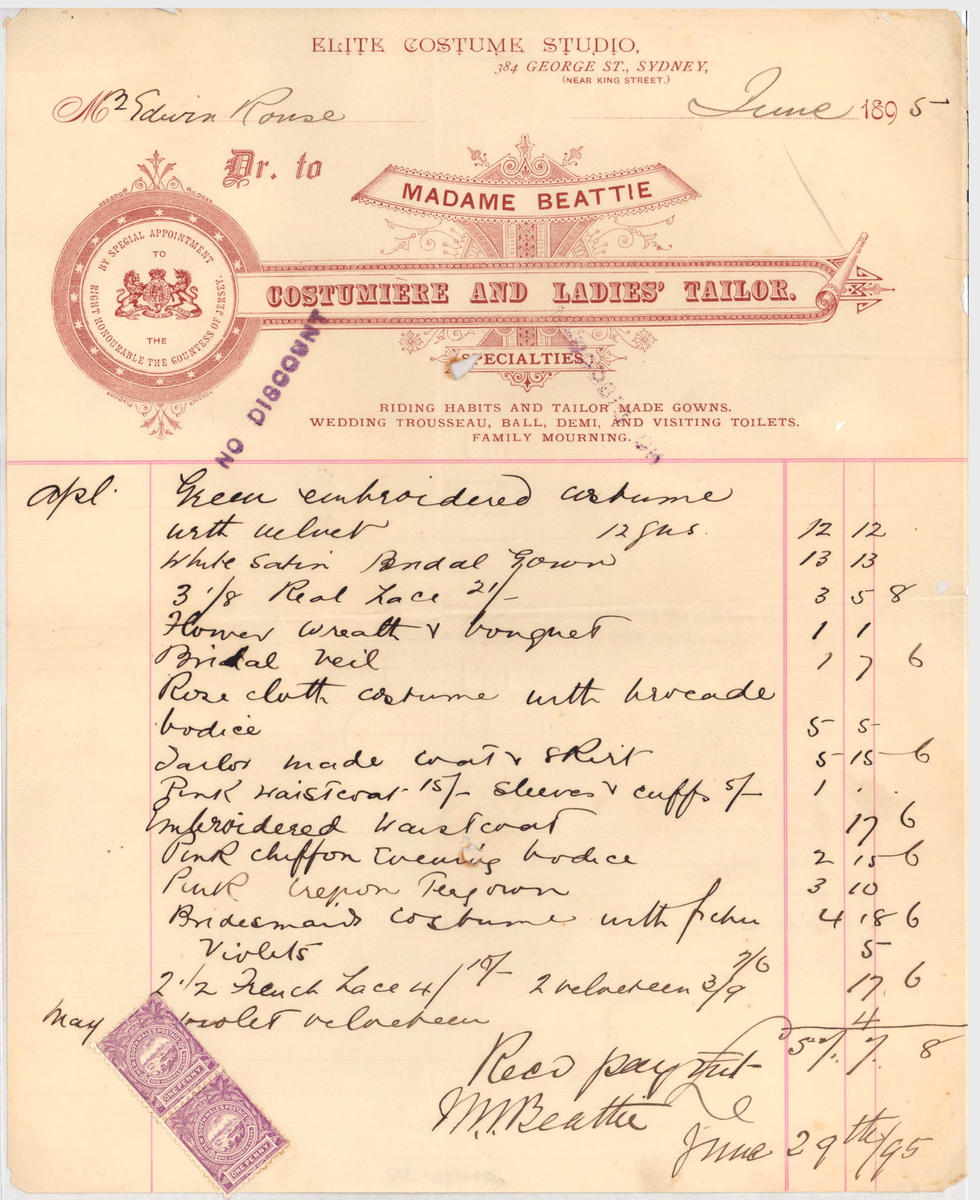 ELITE COSTUME STUDIO,
384 GEORGE ST., SYDNEY,
(NEAR KING STREET.)
Mr Edwin Rouse June 1895
Dr. to
MADAME BEATTIE
BY SPECIAL APPOINTMENT
TO
THE
RIGHT HONOURABLE THE COUNTESS OF JERSEY.
COSTUMIERE AND LADIES' TAILOR.
SPECIALTIES
NO DISCOUNT
RIDING HABITS AND TAILOR MADE GOWNS.
WEDDING TROUSSEAU, BALL, DEMI, AND VISITING TOILETS.
FAMILY MOURNING.
Apl. Green embroidered costume
with velvet 12 gns. 12 12
White Satin Bridal Gown 13 13
3 1/8 Real Lace 21/- 3 5 8
Flower wreath & bouquet 1 1
Bridal Veil 1 7 6
Rose cloth costume with brocade
bodice 5 5
Tailor made coat & skirt 5 15 6
Pink waistcoat 15/- sleeves & cuffs 5/- 1 . .
Embroidered waistcoat 17 6
Pink chiffon Evening bodice 2 15 6
Pink Crepon Teagown 3 10
Bridesmaids costume with fichu 4 18 6
Violets 5
2 1/2 French Lace 4/ 10/- 2 velveteen 3/9 7/6 17 6
May violet velveteen 4
57. 7. 8
Recd payment
M. Beattie
June 29th/95
NEW SOUTH WALES POSTAGE
ONE PENNY
NEW SOUTH WALES POSTAGE
ONE PENNY